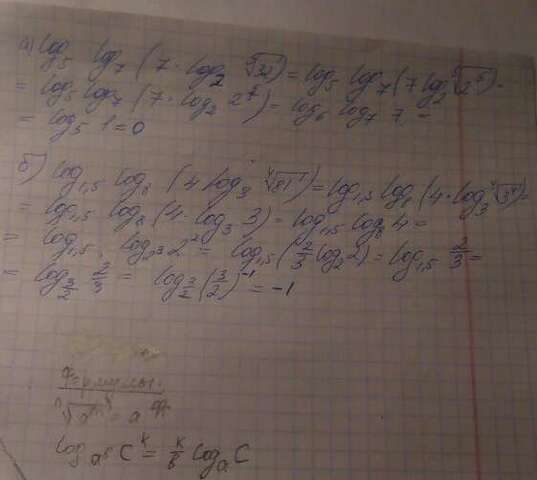 а) log₅ log₇ (7 · log₂ ⁵√32) = log₅ log₇ (7 log₂ ⁵√2⁵) =
= log₅ log₇ (7 · log₂ 2 ) = log₅ log₇ 7 =
= log₅ 1 = 0
б) log₁,₅ log₈ (4 log₃ ⁴√81) = log₁,₅ log₈ (4 · log₃ ⁴√3⁴) =
= log₁,₅ log₈ (4 · log₃ 3) = log₁,₅ log₈ 4 =
= log₁,₅ log₂³ 2² = log₁,₅ (2/3 log₂ 2) = log₁,₅ 2/3 =
= log_{3/2} 2/3 = log_{3/2} (3/2)⁻¹ = -1
Формулы:
log_{a^b} C^k = k/b log_a C